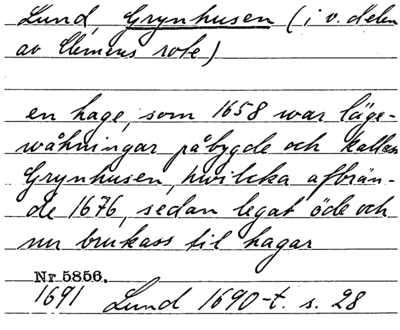 Lund, Grynhusen (i v. delen
av Clemens rote)
en hage, som 1658 war läge-
wåhningar påbygde och kallas
Grynhusen, hwilcka afbrän-
de 1676, sedan legat öde och
nu brukass til hagar
Nr 5856.
1691 Lund 1690-t. s. 28